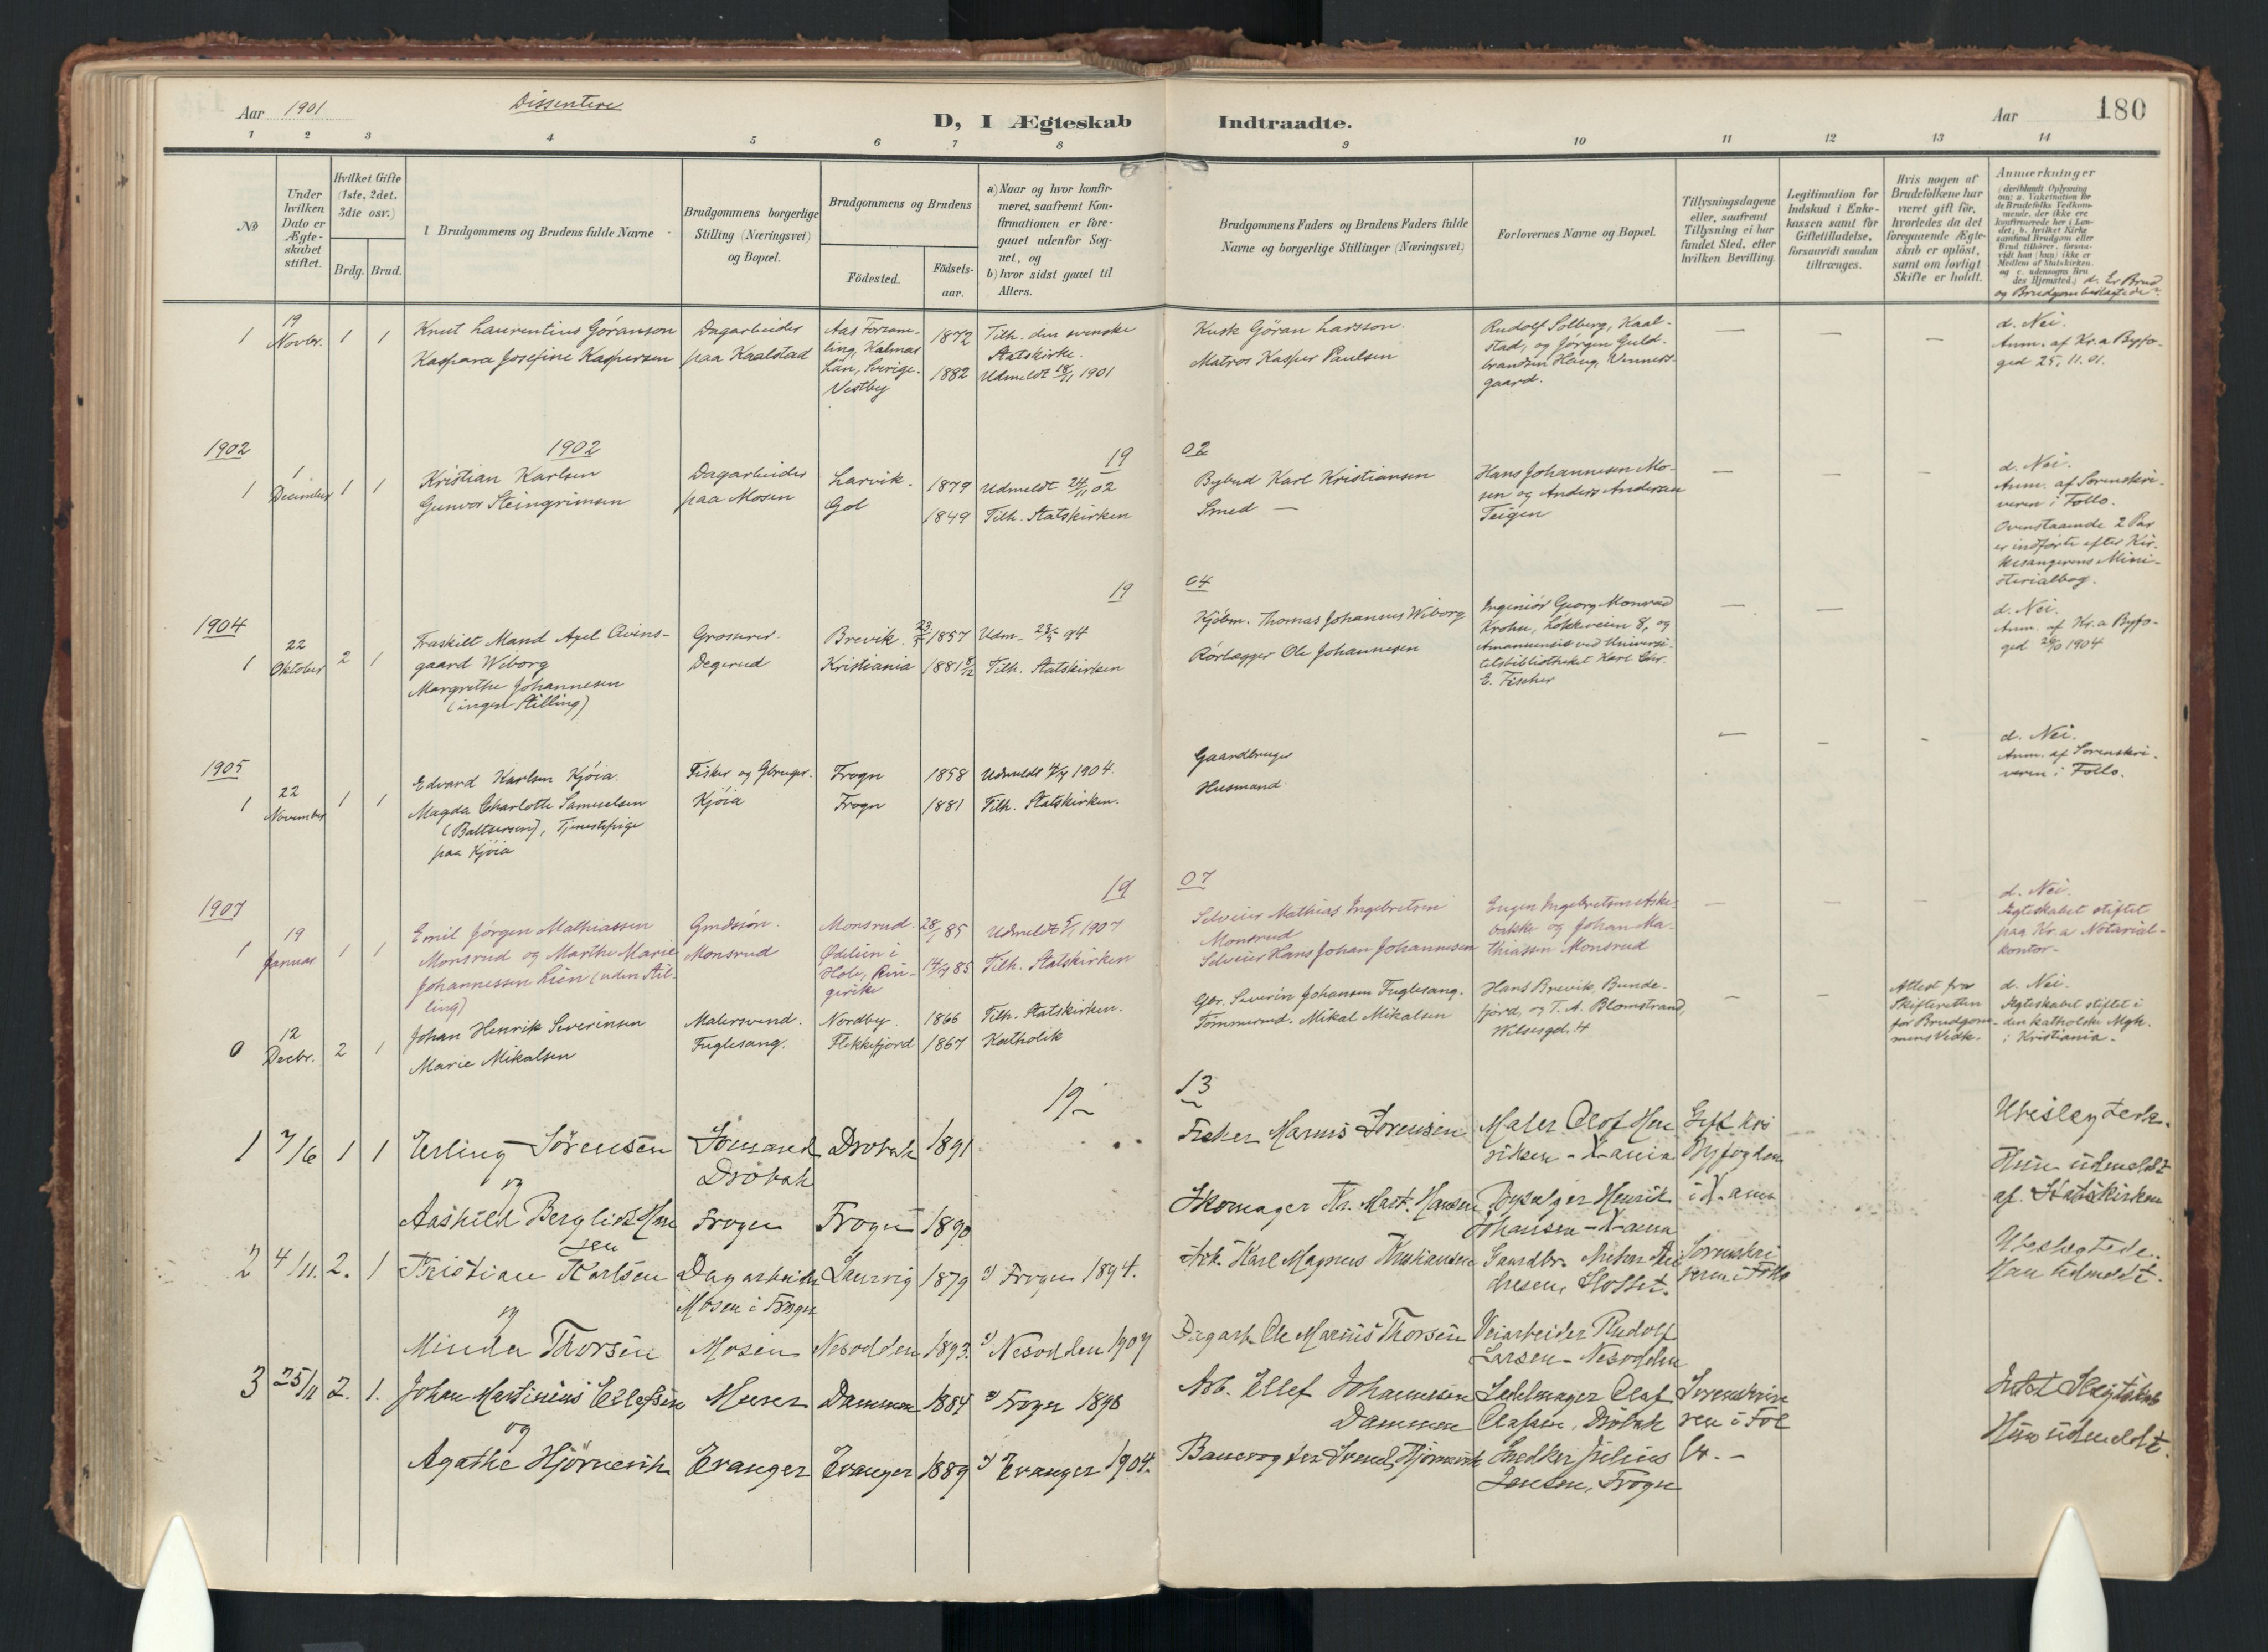 Aar 1901
Dissentere
D, I Ægteskab Indtraadte.
Aar 180
1 2 3 4 5 6 7 8 9 10 11 12 13 14
No
Under hvilken Dato er Ægteskabet stiftet.
Hvilket Gifte (1ste, 2det, 3die osv.)
Brdg. Brud.
Brudgommens og Brudens fulde Navne
Brudgommens borgerlige Stilling (Næringsvei) og Bopæl.
Brudgommens og Brudens
Födested.
Födsels-aar.
a) Naar og hvor konfirmeret, saafremt Konfirmationen er foregaaet udenfor Sognet, og
b) hvor sidst gaaet til Alters.
Brudgommens Faders og Brudens Faders fulde Navne og borgerlige Stillinger (Næringsvei)
Forlovernes Navne og Bopæl.
Tillysningsdagene eller, saafremt Tillysning ei har fundet Sted, efter hvilken Bevilling.
Legitimation for Indskud i Enkekassen samt for Giftetilladelse, forsaavidt saadan tiltrænges.
Hvis nogen af Brudefolkene har været gift för, hvorledes da det foregaaende Ægteskab er oplöst, samt om lovligt Skifte er holdt.
Anmærkninger
d. Er Brud og Brudgom beslægtede?
1 19 Novbr. 1 1
Knut Laurentius Göranson
Kaspara Josefine Kaspersen
Dagarbeider
paa Kaalstad
Aas Forsam-
ling, Kalmar
Län, Sverige.
Vestby
1872
1882
Tilh. den svenske
Statskirke.
Udmeldt 18/11 1901
Kusk Göran Larsson.
Matros Kasper Paulsen
Rudolf Solberg, Kaal-
stad, og Jörgen Guld-
brandsen Haug, Vinners-
gaard.
d. Nei.
Anm. af Kr.a Byfo-
ged 25.11.01.
1902
1902
19 02
1 1 December 1 1
Kristian Karlsen
Gunvor Steingrimsen
Dagarbeider
paa Mosen
Larvik.
Gol
1879
1849
Udmeldt 24/11 02
Tilh. Statskirken
Bybud Karl Kristiansen
Smed —
Hans Johannesen Mo-
sen og Anders Andersen
Teigen
d. Nei.
Anm. af Sorenskri-
veren i Follo.
Ovenstaaende 2 Par
er indførte efter Kir-
kesangerens Mini-
sterialbog.
19 04
1904
1 22 Oktober 2 1
Fraskilt Mand Axel Qvins-
gaard Wiborg
Margrethe Johannesen
(ingen Stilling)
Grosserer.
Degerud
Brevik.
Kristiania
1857
1881 8/12
Udm. 94
Tilh. Statskirken
Kjöbm. Thomas Johannes Wiborg
Rörlægger Ole Johannesen
Ingeniör Georg Monrad
Krohn, Lökkeveien 8, og
Amanuensis ved Universi-
tetsbibliotheket Karl Chr.
E. Fischer
d. Nei.
Anm. af Kr.a Byfo-
ged 1904
1905
1 22 November 1 1
Edvard Karlsen Kjöia.
Magda Charlotte Samuelsen
(Baltzersen), Tjenestepige
paa Kjöia
Fisker og Gbruger.
Kjöia
Frogn
Frogn
1858
1881
Udmeldt 1904.
Tilh. Statskirken.
Gaardbruger
Husmand
d. Nei.
Anm. af Sorenskri-
veren i Follo.
1907
19 07
1 19 Januar 1 1
Emil Jörgen Mathiassen
Monsrud og Marthe Marie
Johannessen Lien (uden Stil-
ling)
Gmdssön.
Monsrud
Monsrud
Ødelien i
Hole, Rin-
gerike
85
85
Udmeldt 5/1 1907
Tilh. Statskirken
Selveier Mathias Ingebretsen
Monsrud
Selveier Hans Johan Johannesen
Eugen Ingebretsen Aske-
bakke og Johan Ma-
thiassen Monsrud
d. Nei.
Ægteskabet stiftet
paa Kr.a Notarial-
kontor.
0 12 Decbr. 2 1
Johan Henrik Severinsen
Marie Mikalsen
Malersvend.
Fuglesang.
Nordby.
Flekkefjord
1866
1867
Tilh. Statskirken.
Katholik
Gbr. Severin Johansen Fuglesang.
Tömmermd. Mikal Mikalsen
Hans Brevik, Bunde-
fjord, og T. A. Blomstrand,
Wilsesgd. 4
Attest fra
Skifteretten
for Brudgom-
mens Vedk.
d. Nei.
Ægteskabet stiftet i
den katholske Mgh.
i Kristiania.
19 13
1 7/6 1 1
Erling Sörensen
og
Aashild Bergliot Han
sen
Sömand
Dröbak
Frogn
Drobak
Frogn
1891
1890
Fisker Marius Sörensen
Skomager Kr. Math. Hansen
Maler Olof Hen
riksen - X-ania
Johansen - X-ania
Gift hos
Byfogden
i X-ania
Ubeslegtede.
Hun udmeldt
af Statskirken
2 4/11. 2. 1
Kristian Karlsen
og
Minda Thorsen
Dagarbeider
Mosen i Frogn
Mosen
Laurvig
Nesodden
1879
1893.
Frogn 1894.
Nesodden 1907
Arb. Karl Magnus Kristiansen
Dagarb. Ole Marius Thorsen
Gaardbr. Anton An
dresen, Slottet.
Veiarbeider Rudolf
Larsen - Nesodden
Sorenskri
veren i Follo
Ubeslegtede.
Han udmeldt.
3 25/11 2. 1.
Johan Martinius Ellefsen
og
Agathe Hjörnevik
Murer
Evanger
Dammen
Evanger
1884
1889
Frogn 1898
Evanger 1904.
Arb. Ellef Johannessen
Dammen
Banevogter Svend Hjörnevik
Sadelmager Olaf
Olafsen, Dröbak
Snedker Julius
Jensen, Frogn
Sorenskrive
ren i Fol
lo. -
Hun udmeldt.